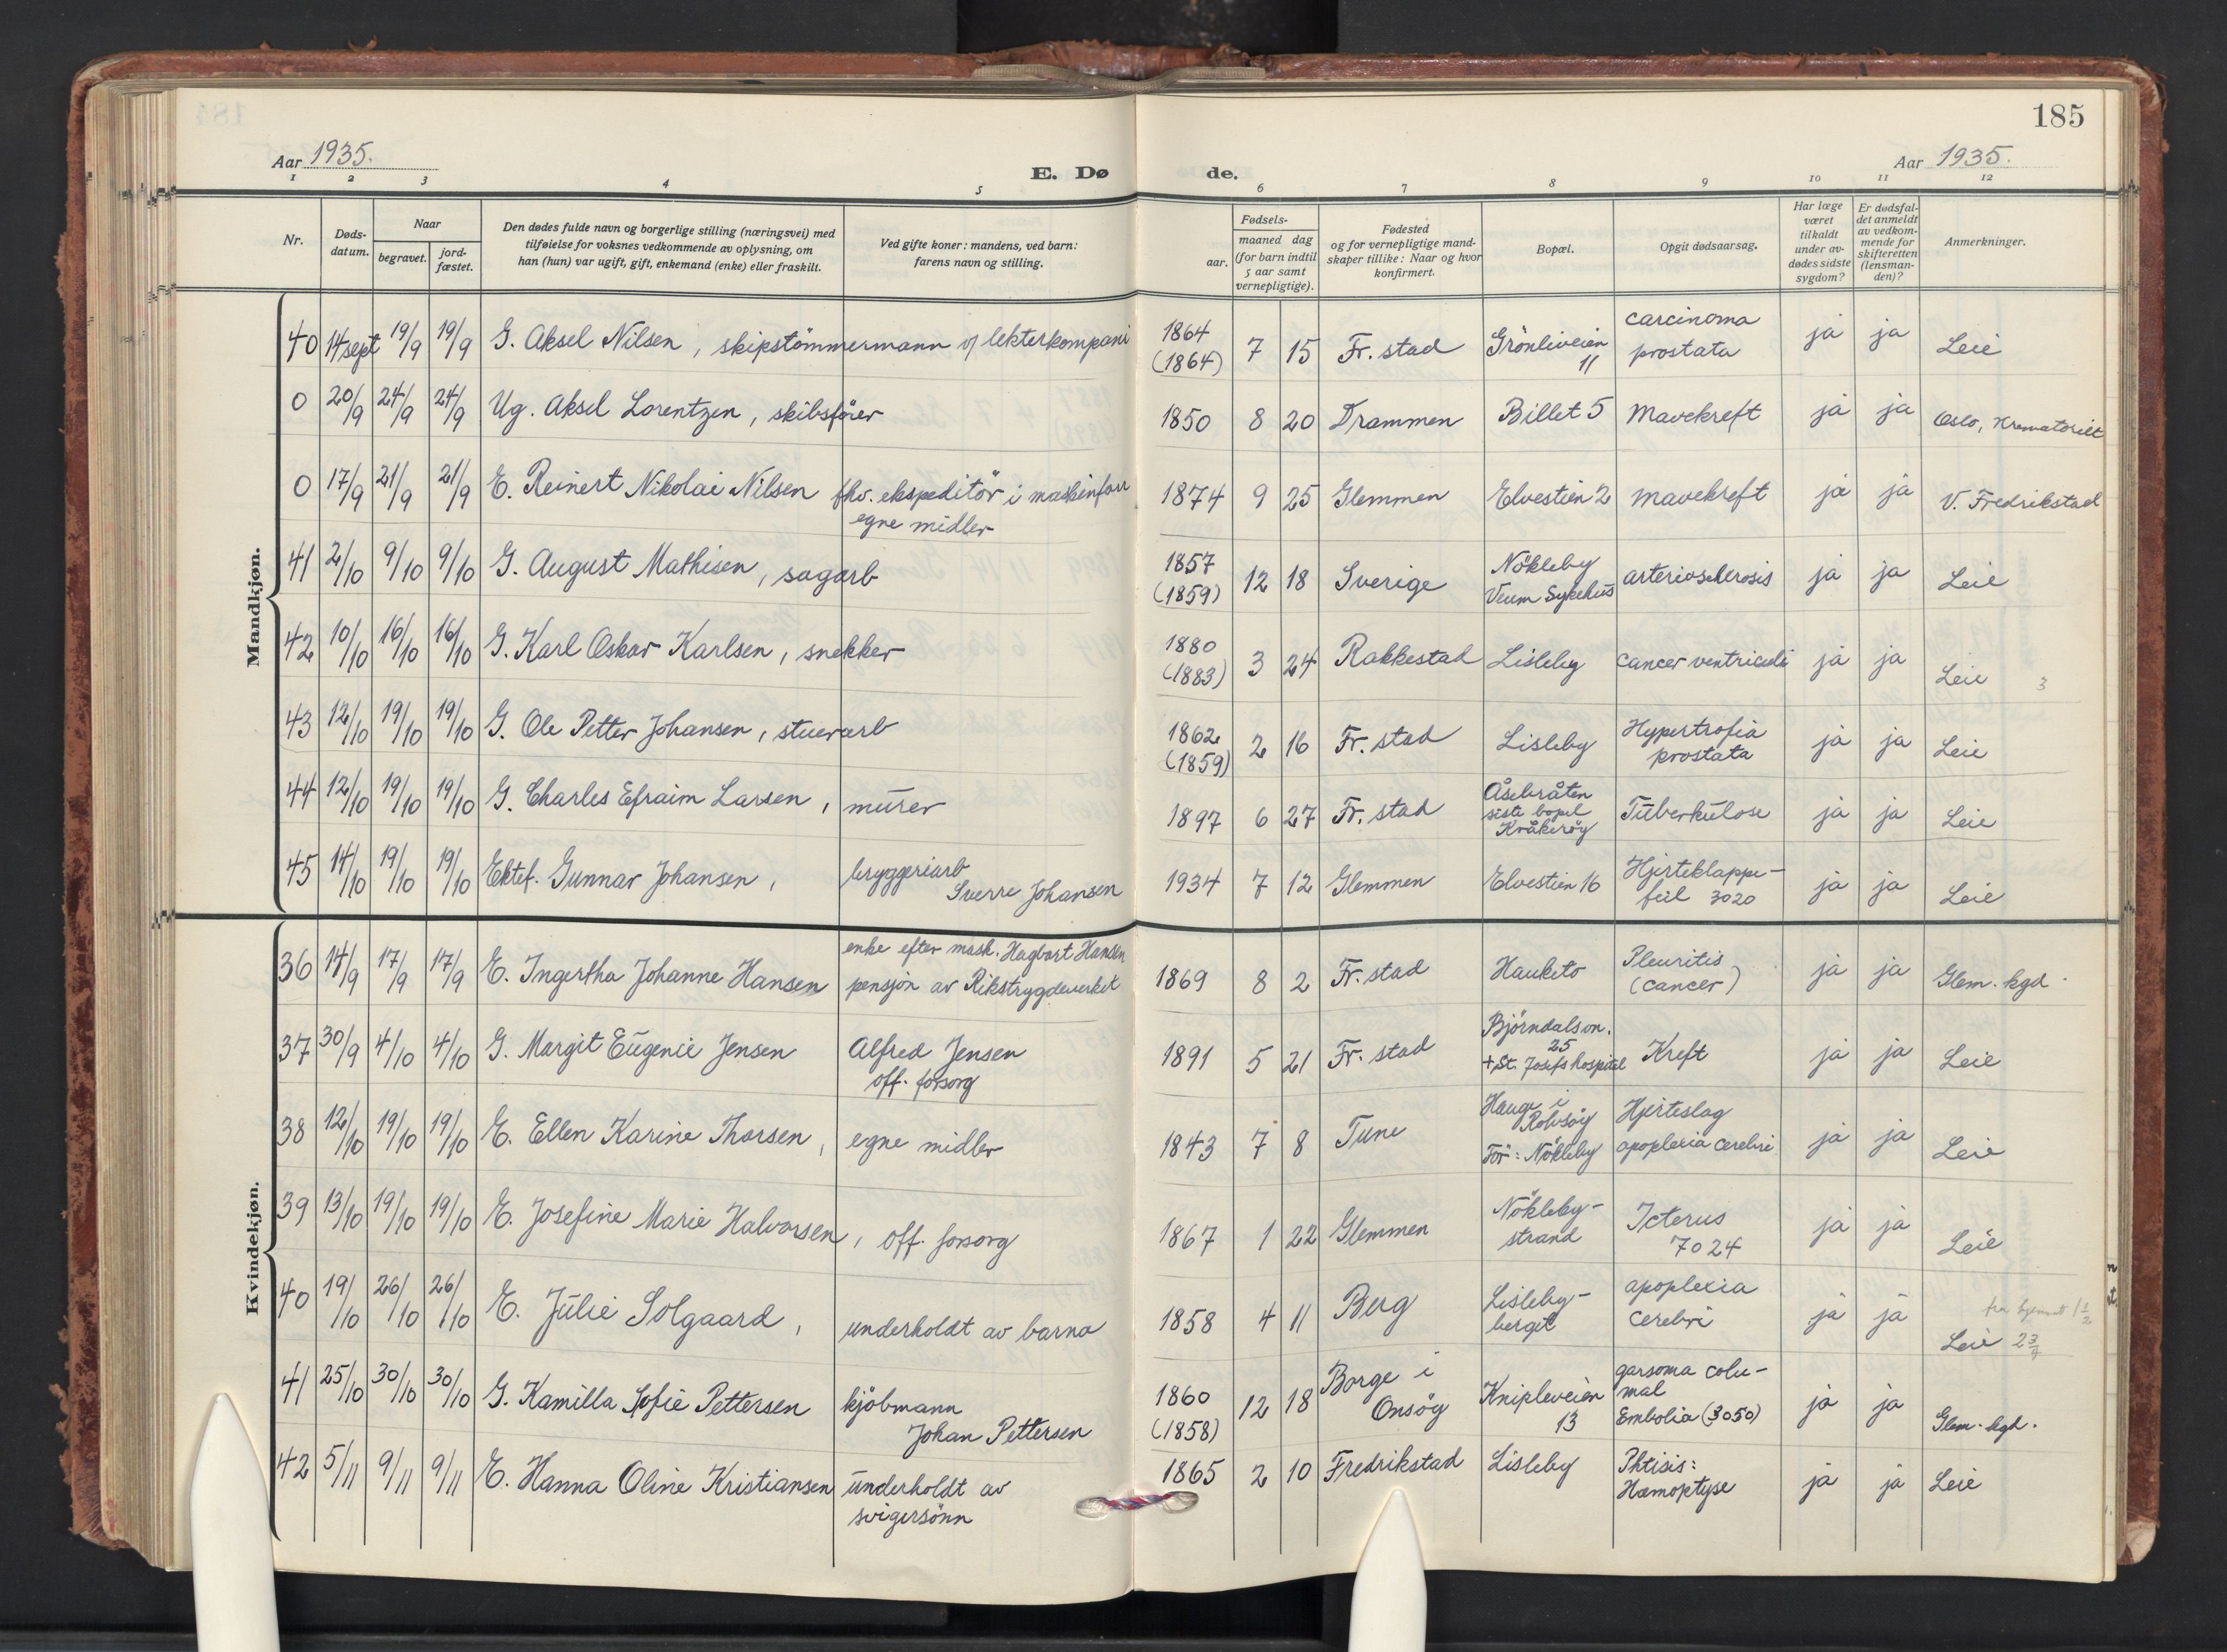 185
Aar 1935.
E. Dø de.
Aar 1935.
1 2 3 4 5 6 7 8 9 10 11 12
Nr.
Døds-
datum.
Naar
begravet.
jord-
fæstet.
Den dødes fulde navn og borgerlige stilling (næringsvei) med
tilføielse for voksnes vedkommende av oplysning, om
han (hun) var ugift, gift, enkemand (enke) eller fraskilt.
Ved gifte koner: mandens, ved barn:
farens navn og stilling.
Fødsels-
aar.
maaned dag
(for barn indtil
5 aar samt
vernepligtige).
Fødested
og for vernepligtige mand-
skaper tillike: Naar og hvor
konfirmert.
Bopæl.
Opgit dødsaarsag.
Har læge
været
tilkaldt
under av-
dødes sidste
sygdom?
Er dødsfal-
det anmeldt
av vedkom-
mende for
skifteretten
(lensman-
den)?
Anmerkninger.
Mandkjøn.
40 14 sept 19/9 19/9 G. Aksel Nilsen, skipstömmermann v/ lekterkompani 1864 (1864) 7 15 Fr. stad Grönliveien 11 carcinoma prostata ja ja Leie
0 20/9 24/9 24/9 Ug. Aksel Lorentzen, skibsförer 1850 8 20 Drammen Billet 5 Mavekreft ja ja Oslo, Krematoriet
0 17/9 21/9 21/9 E. Reinert Nikolai Nilsen fhv. ekspeditör i maskinforr egne midler 1874 9 25 Glemmen Elvestien 2 mavekreft ja ja V. Fredrikstad
41 2/10 9/10 9/10 G. August Mathisen, sagarb 1857 (1859) 12 18 Sverige Nökleby Veum Sykehus arteriosclerosis ja ja Leie
42 10/10 16/10 16/10 G. Karl Oskar Karlsen, snekker 1880 (1883) 3 24 Rakkestad Lisleby cancer ventriculi ja ja Leie 3
43 12/10 19/10 19/10 G. Ole Petter Johansen, stuerarb 1862 (1859) 2 16 Fr. stad Lisleby Hypertrofia prostata ja ja Leie
44 12/10 19/10 19/10 G. Charles Efraim Larsen, murer 1897 6 27 Fr. stad Åsebråten siste bopel Kråkeröy Tuberkulose ja ja Leie
45 14/10 19/10 19/10 Ektef. Gunnar Johansen, bryggeriarb Sverre Johansen 1934 7 12 Glemmen Elvestien 16 Hjerteklappe- feil 3020 ja ja Leie
Kvindekjøn.
36 14/9 17/9 17/9 E. Ingertha Johanne Hansen enke efter mask. Hagbart Hansen pensjon av Rikstrygdeverket 1869 8 2 Fr. stad Hauketo Pleuritis (cancer) ja ja Glem. kgd.
37 30/9 4/10 4/10 G. Margit Eugenie Jensen Alfred Jensen off. forsorg 1891 5 21 Fr. stad Björndalsvn. 25 + St. Josefs hospital Kreft ja ja Leie
38 12/10 19/10 19/10 E. Ellen Karine Thorsen, egne midler 1843 7 8 Tune Hauge i Rolvsöy För: Nökleby Hjerteslag apoplexia cerebri ja ja Leie
39 13/10 19/10 19/10 E. Josefine Marie Halvorsen, off. forsorg 1867 1 22 Glemmen Nökleby- strand Icterus 7024 ja ja Leie
40 19/10 26/10 26/10 E. Julie Solgaard, underholdt av barna 1858 4 11 Berg Lisleby- berget apoplexia cerebri ja ja fra hjemmet 1 1/2 Leie 2 3/4
41 25/10 30/10 30/10 G. Kamilla Sofie Pettersen kjöbmann Johan Pettersen 1860 (1858) 12 18 Borge i Onsöy Knipleveien 13 garsoma colu- mal Embolia (3050) ja ja Glem. kgd.
42 5/11 9/11 9/11 E. Hanna Oline Kristiansen underholdt av svigersönn 1865 2 10 Fredrikstad Lisleby Phtisis: Hæmoptyse ja ja Leie